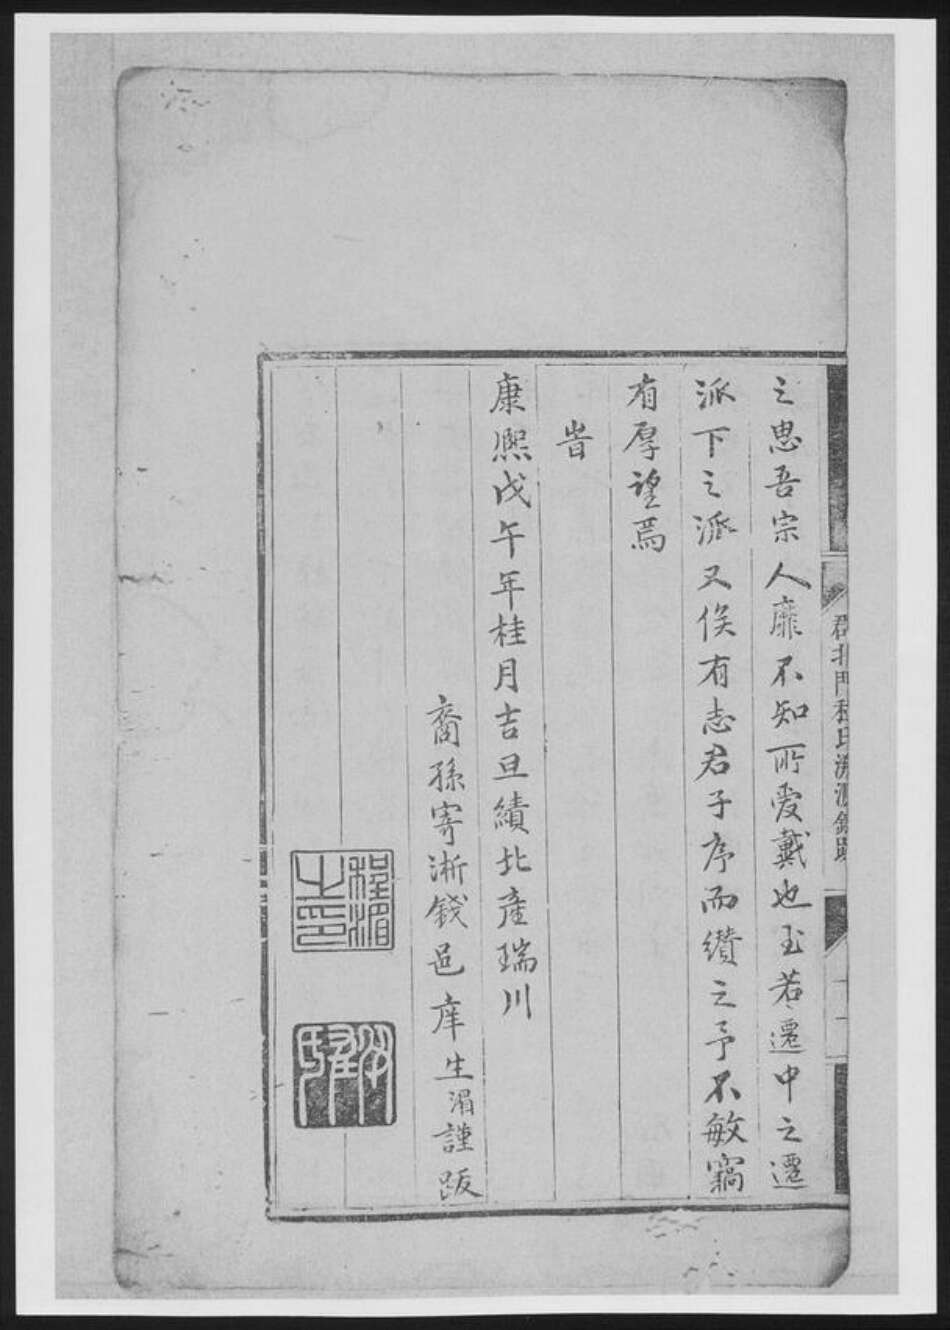 之思吾宗人靡不知所愛戴也至若遷中之遷
派下之派又俟有志君子序而纘之予不敏竊
有厚望焉
旹
康熙戊午年桂月吉旦績北產瑞川
裔孫寄淅錢邑庠生湄謹跋
程湄之印
郡北門程氏淵源錄跋
十一